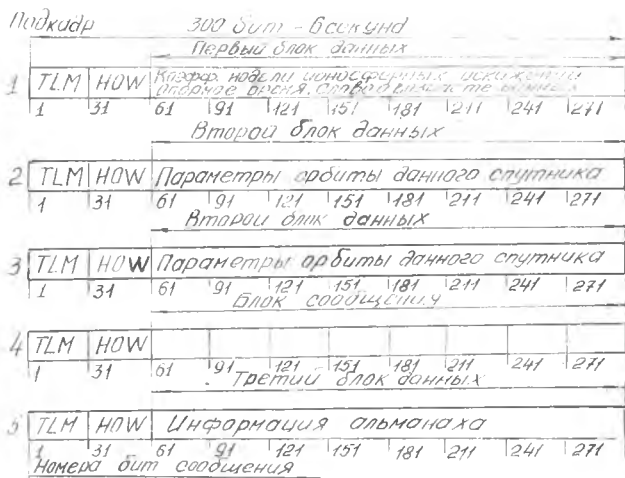 Подкадр 300 бит - 6 секунд
Первый блок данных
1 TLM HOW Коэфф. модели ионосферных искажений
опорное время,
1 31 61 91 121 151 181 211 241 271
Второй блок данных
2 TLM HOW Параметры орбиты данного спутника
1 31 61 91 121 151 181 211 241 271
Второй блок данных
3 TLM HOW Параметры орбиты данного спутника
1 31 61 91 121 151 181 211 241 271
Блок сообщения
4 TLM HOW
1 31 61 91 121 151 181 211 241 271
Третий блок данных
5 TLM HOW Информация альманаха
1 31 61 91 121 151 181 211 241 271
Номера бит сообщения